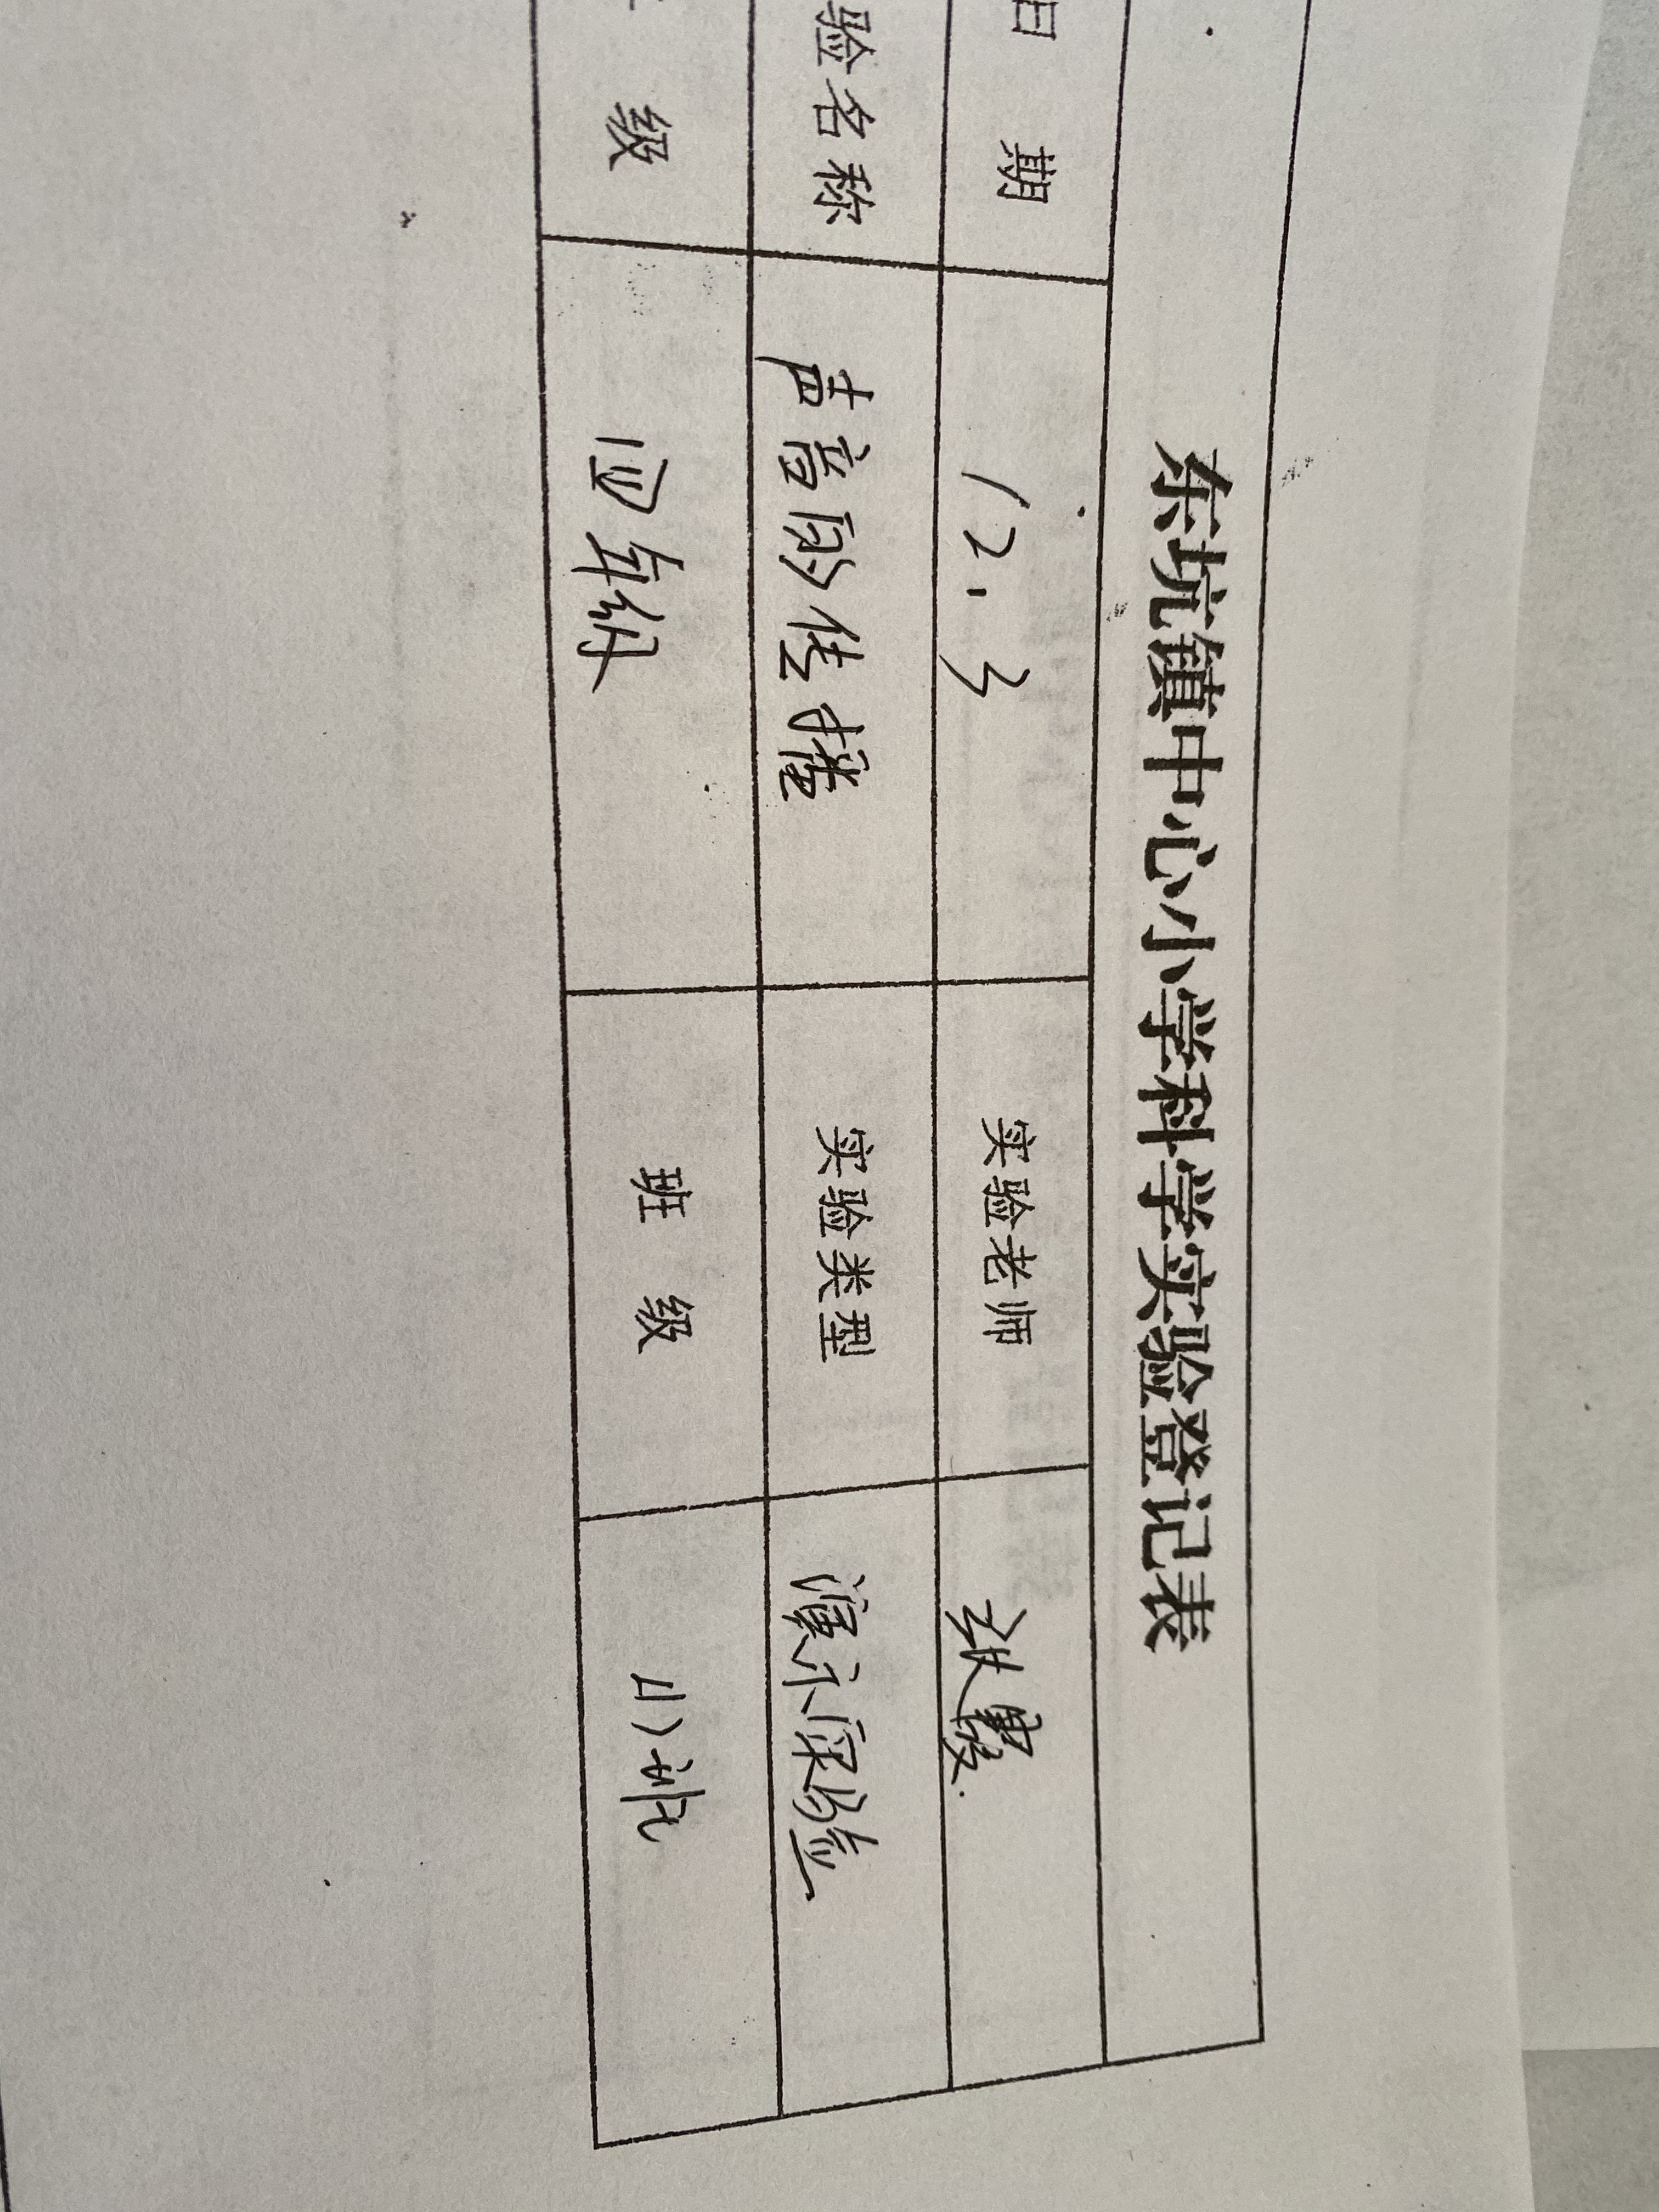 东坑镇中心小学科学实验登记表
日 期 12.3 实验老师 张霞
验名称 声音的传播 实验类型 演示实验
级 四年级 班 级 4(1)班